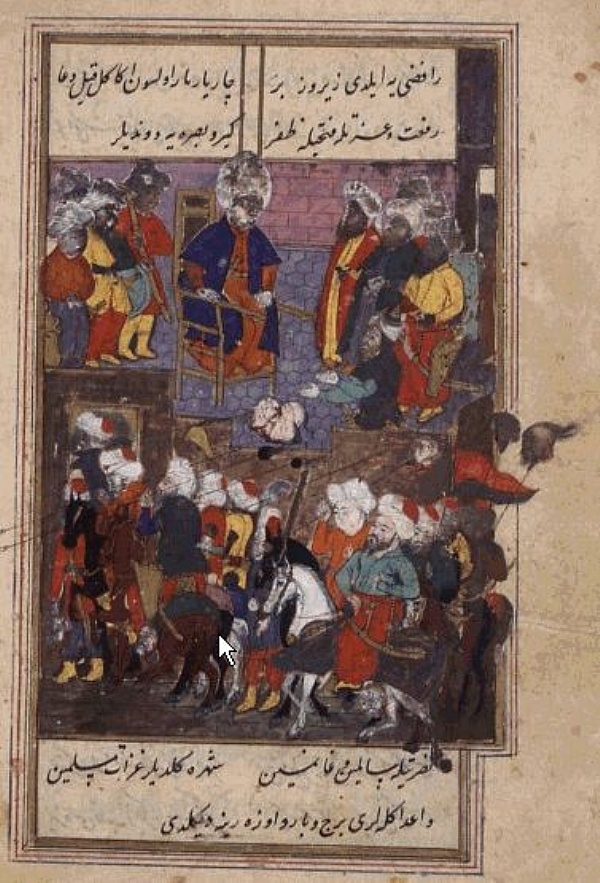 رافضی یه ایلدی زیر و زبر چار یار یار اولسون اکا کل قیل دعا
رفعت و عزتله فتحیله ظفر کیرو بصره یه دوندیلر
نصرتیله سالمین و غانمین شهره کلدیلر غزات مسلمین
و اعدا کله لری برج و بارو اوزه رینه دیکلدی